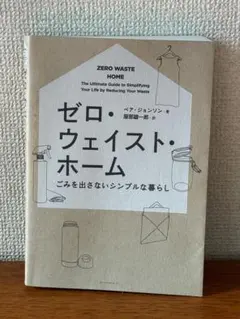 ZERO WASTE
HOME
The Ultimate Guide to Simplifying
Your Life by Reducing Your Waste
ベア・ジョンソン 著
服部雄一郎 訳
ゼロ・
ウェイスト・
ホーム
ごみを出さないシンプルな暮らし